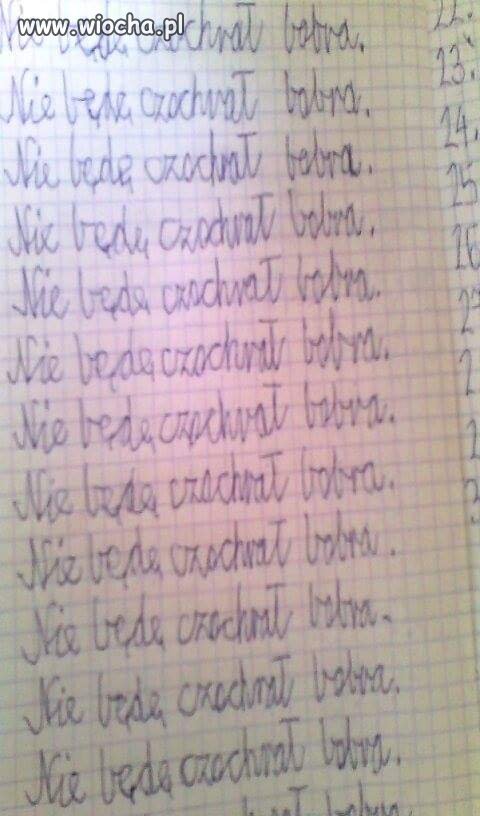 www.wiocha.pl
Nie będę czochrał bobra.
Nie będę czochrał bobra.
Nie będę czochrał bobra.
Nie będę czochrał bobra.
Nie będę czochrał bobra.
Nie będę czochrał bobra.
Nie będę czochrał bobra.
Nie będę czochrał bobra.
Nie będę czochrał bobra.
Nie będę czochrał bobra.
Nie będę czochrał bobra.
Nie będę czochrał bobra.
bobra.
22.
23.
24.
25
26
2
2